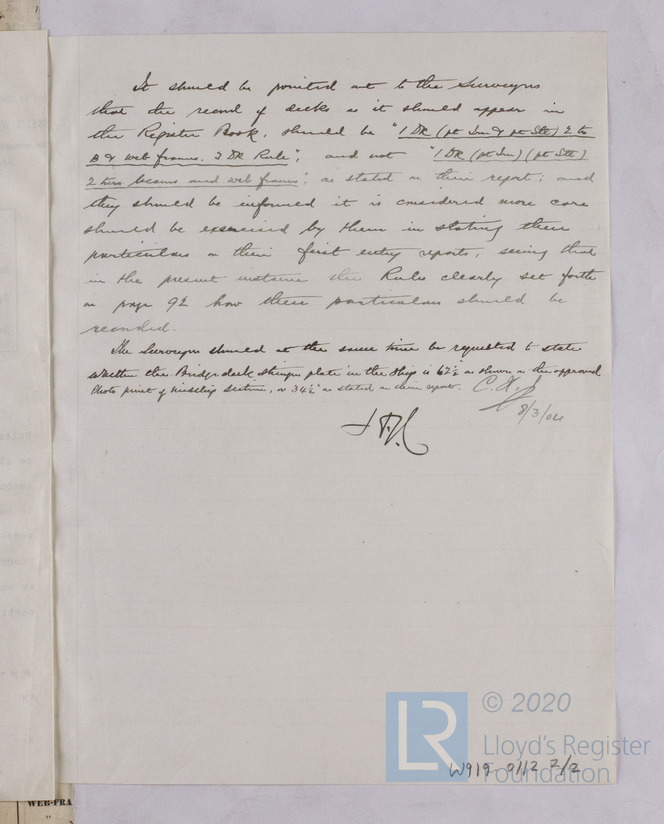 It should be pointed out to the Surveyors
that the record of decks as it should appear in
the Register Book, should be "1 DK (pt Irn & pt Stl) 2 trs
B & web frames. 3 DK Rule"; and not "1 DK (pt Irn) (pt Stl)
2 tiers beams and web frames"; as stated on their report; and
they should be informed it is considered more care
should be exercised by them in stating these
particulars on their first entry reports, seeing that
in the present instance the Rules clearly set forth
on page 92 how these particulars should be
recorded.
The Surveyors should at the same time be requested to state
whether the Bridge deck stringer plate in the Ship is 67½" as shown on the approved
Photo print of midship section, or 34½" as stated on their report.
8/3/04
© 2020
LR
Lloyd's Register
Foundation
W919-0112 2/2
WEB-FRA